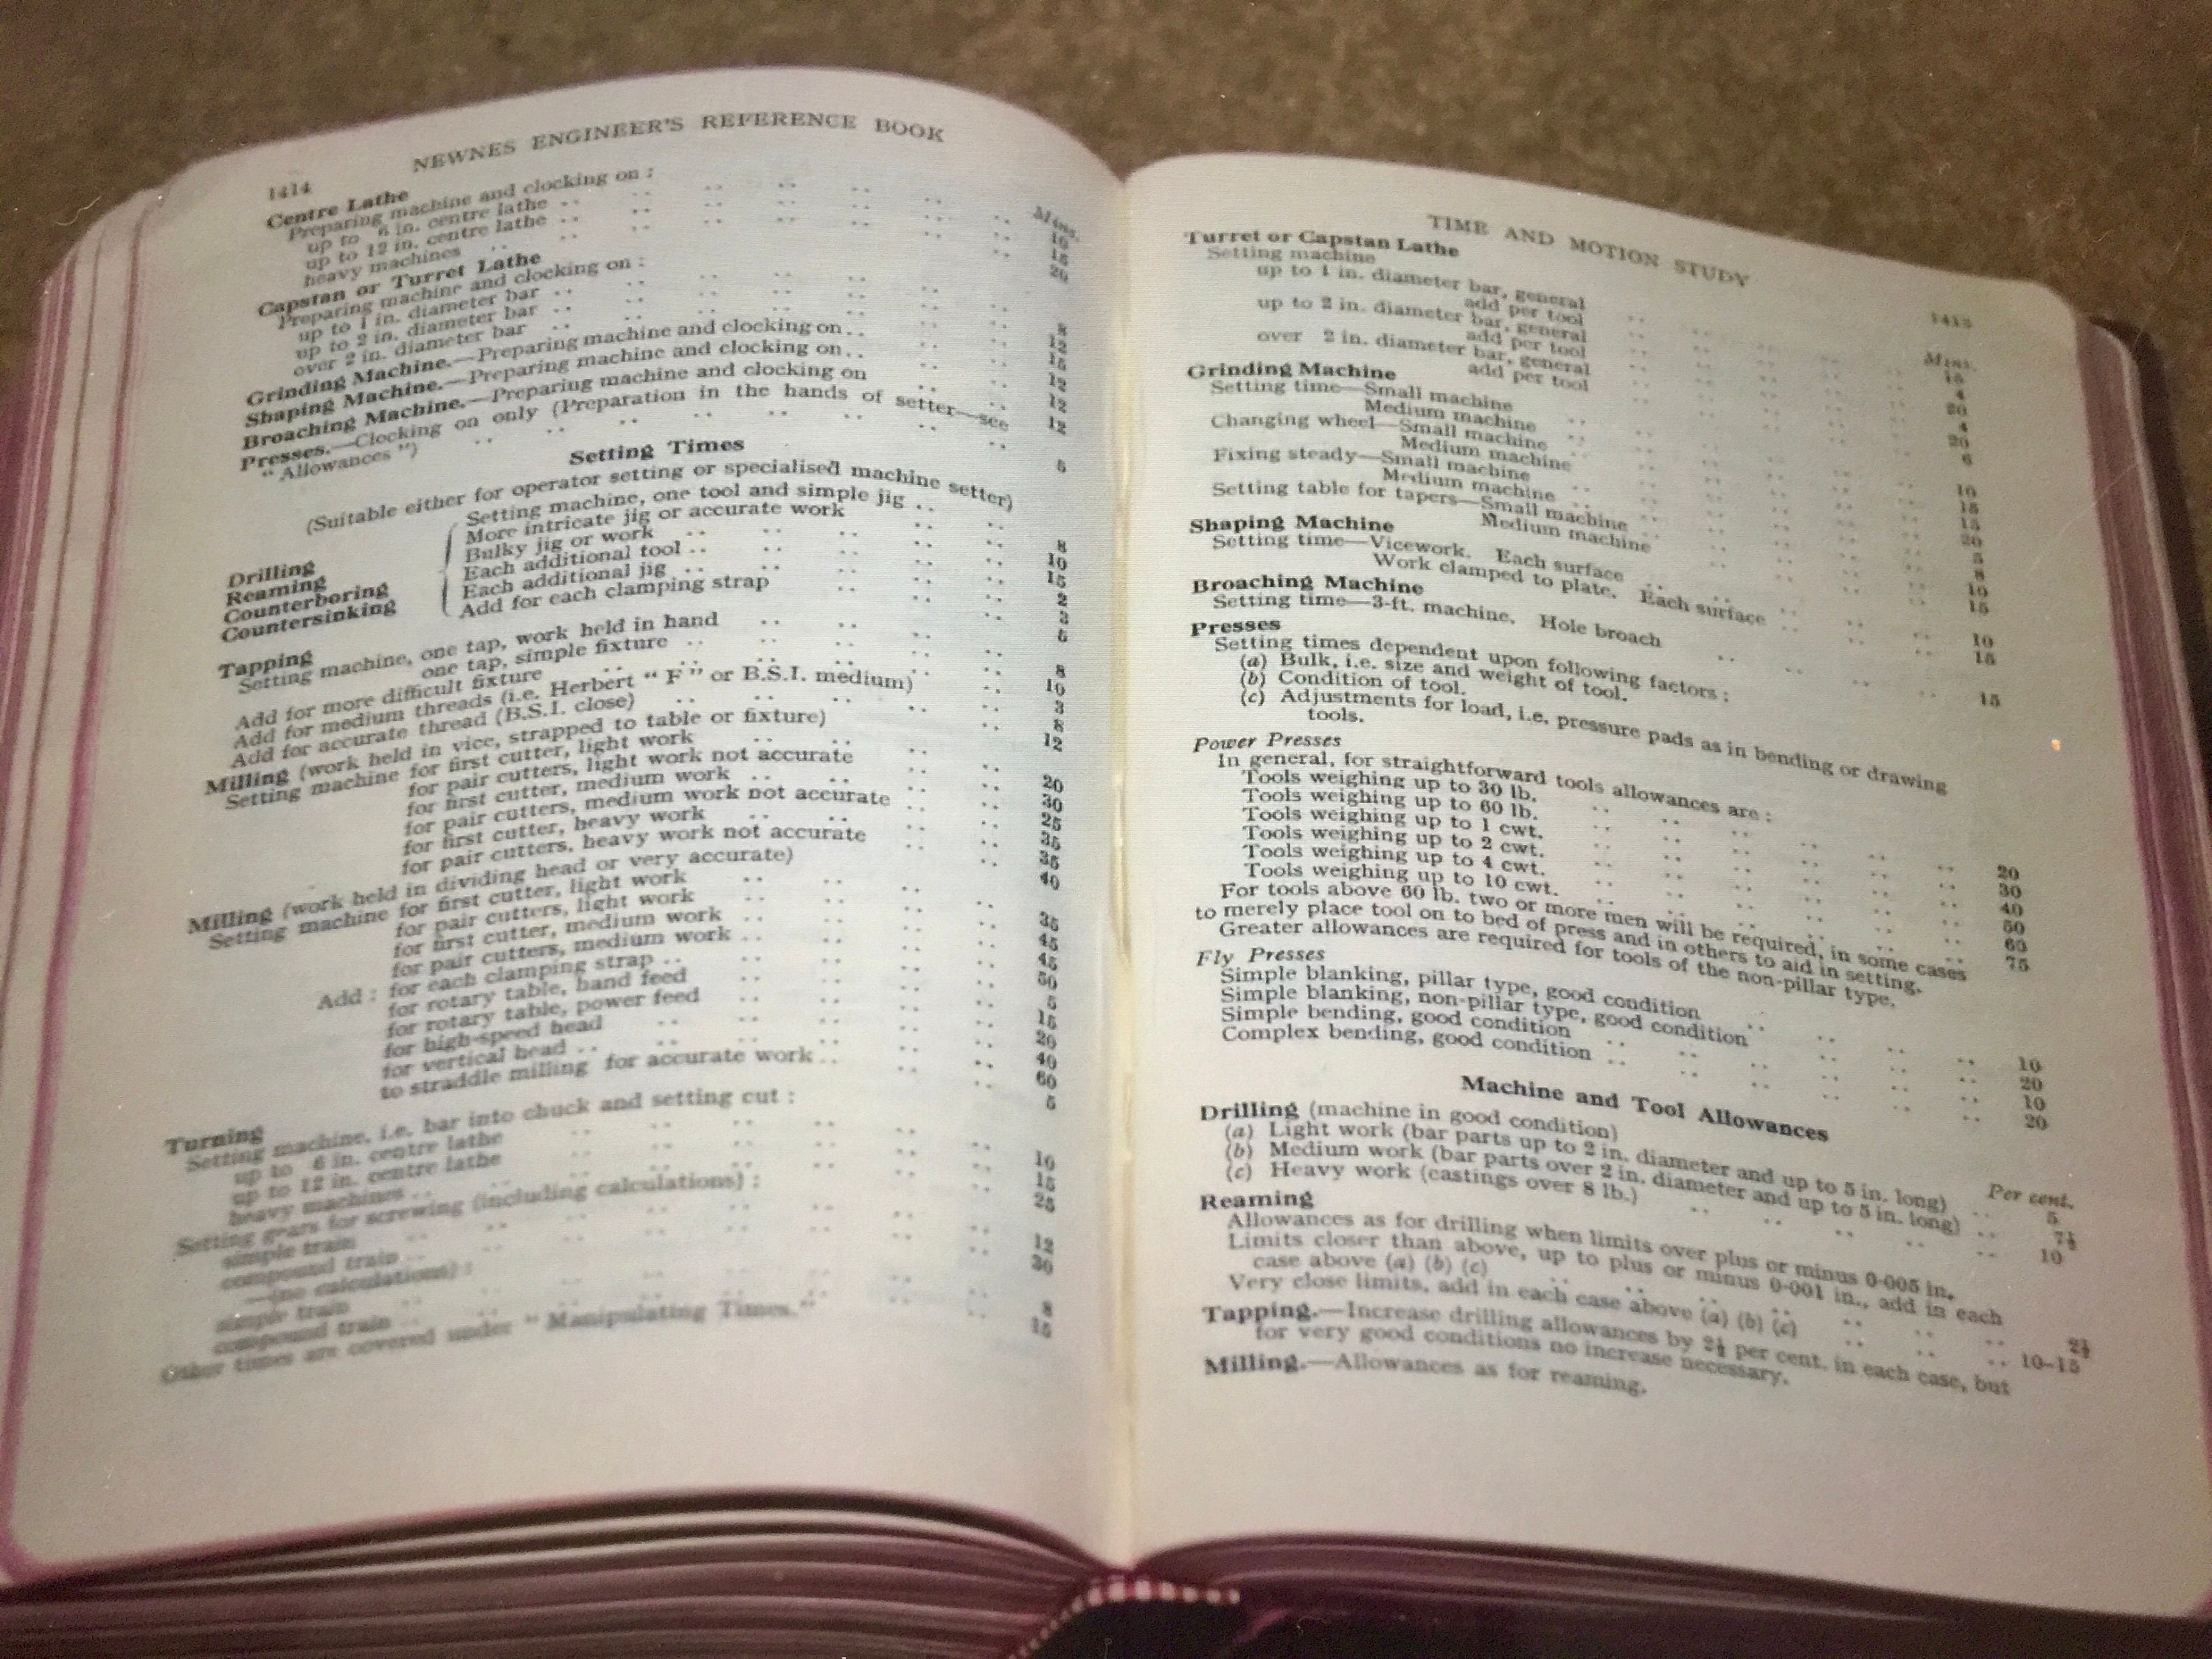 1414 NEWNES ENGINEER'S REFERENCE BOOK
Mins.
Centre Lathe
Preparing machine and clocking on :
up to 6 in. centre lathe .. 10
up to 12 in. centre lathe .. 15
heavy machines .. 20
Capstan or Turret Lathe
Preparing machine and clocking on :
up to 1 in. diameter bar .. 8
up to 2 in. diameter bar .. 12
over 2 in. diameter bar .. 15
Grinding Machine.—Preparing machine and clocking on.. 12
Shaping Machine.—Preparing machine and clocking on.. 12
Broaching Machine.—Preparing machine and clocking on 12
Presses.—Clocking on only (Preparation in the hands of setter—see
" Allowances ") .. 5
Setting Times
(Suitable either for operator setting or specialised machine setter)
Drilling
Reaming
Counterboring
Countersinking
Setting machine, one tool and simple jig .. 8
More intricate jig or accurate work .. 10
Bulky jig or work .. 15
Each additional tool .. 2
Each additional jig .. 3
Add for each clamping strap .. 5
Tapping
Setting machine, one tap, work held in hand .. 8
one tap, simple fixture .. 10
Add for more difficult fixture .. 3
Add for medium threads (i.e. Herbert " F " or B.S.I. medium) .. 8
Add for accurate thread (B.S.I. close) .. 12
Milling (work held in vice, strapped to table or fixture)
Setting machine for first cutter, light work .. 20
for pair cutters, light work not accurate .. 30
for first cutter, medium work .. 25
for pair cutters, medium work not accurate .. 35
for first cutter, heavy work .. 35
for pair cutters, heavy work not accurate .. 40
Milling (work held in dividing head or very accurate)
Setting machine for first cutter, light work .. 35
for pair cutters, light work .. 45
for first cutter, medium work .. 45
for pair cutters, medium work .. 50
Add : for each clamping strap .. 5
for rotary table, hand feed .. 15
for rotary table, power feed .. 20
for high-speed head .. 40
for vertical head .. 60
to straddle milling for accurate work .. 5
Turning
Setting machine, i.e. bar into chuck and setting cut :
up to 6 in. centre lathe .. 10
up to 12 in. centre lathe .. 15
heavy machines .. 25
Setting gears for screwing (including calculations) :
simple train .. 12
compound train .. 30
—(no calculations) :
simple train .. 8
compound train .. 15
Other times are covered under " Manipulating Times."
TIME AND MOTION STUDY
Mins.
Turret or Capstan Lathe
Setting machine
up to 1 in. diameter bar, general .. 15
add per tool .. 4
up to 2 in. diameter bar, general .. 20
add per tool .. 4
over 2 in. diameter bar, general .. 20
add per tool .. 6
Grinding Machine
Setting time—Small machine .. 10
Medium machine .. 15
Changing wheel—Small machine .. 15
Medium machine .. 20
Fixing steady—Small machine .. 5
Medium machine .. 8
Setting table for tapers—Small machine .. 10
Medium machine .. 15
Shaping Machine
Setting time—Vicework. Each surface .. 10
Work clamped to plate. Each surface .. 15
Broaching Machine
Setting time—3-ft. machine. Hole broach .. 15
Presses
Setting times dependent upon following factors :
(a) Bulk, i.e. size and weight of tool.
(b) Condition of tool.
(c) Adjustments for load, i.e. pressure pads as in bending or drawing
tools.
Power Presses
In general, for straightforward tools allowances are :
Tools weighing up to 30 lb. .. 20
Tools weighing up to 60 lb. .. 30
Tools weighing up to 1 cwt. .. 40
Tools weighing up to 2 cwt. .. 50
Tools weighing up to 4 cwt. .. 60
Tools weighing up to 10 cwt. .. 75
For tools above 60 lb. two or more men will be required, in some cases
to merely place tool on to bed of press and in others to aid in setting.
Greater allowances are required for tools of the non-pillar type.
Fly Presses
Simple blanking, pillar type, good condition .. 10
Simple blanking, non-pillar type, good condition .. 20
Simple bending, good condition .. 10
Complex bending, good condition .. 20
Machine and Tool Allowances
Per cent.
Drilling (machine in good condition)
(a) Light work (bar parts up to 2 in. diameter and up to 5 in. long) .. 5
(b) Medium work (bar parts over 2 in. diameter and up to 5 in. long) .. 7½
(c) Heavy work (castings over 8 lb.) .. 10
Reaming
Allowances as for drilling when limits over plus or minus 0·005 in.
Limits closer than above, up to plus or minus 0·001 in., add in each
case above (a) (b) (c) .. 2½
Very close limits, add in each case above (a) (b) (c) .. 10–15
Tapping.—Increase drilling allowances by 2½ per cent. in each case, but
for very good conditions no increase necessary.
Milling.—Allowances as for reaming.